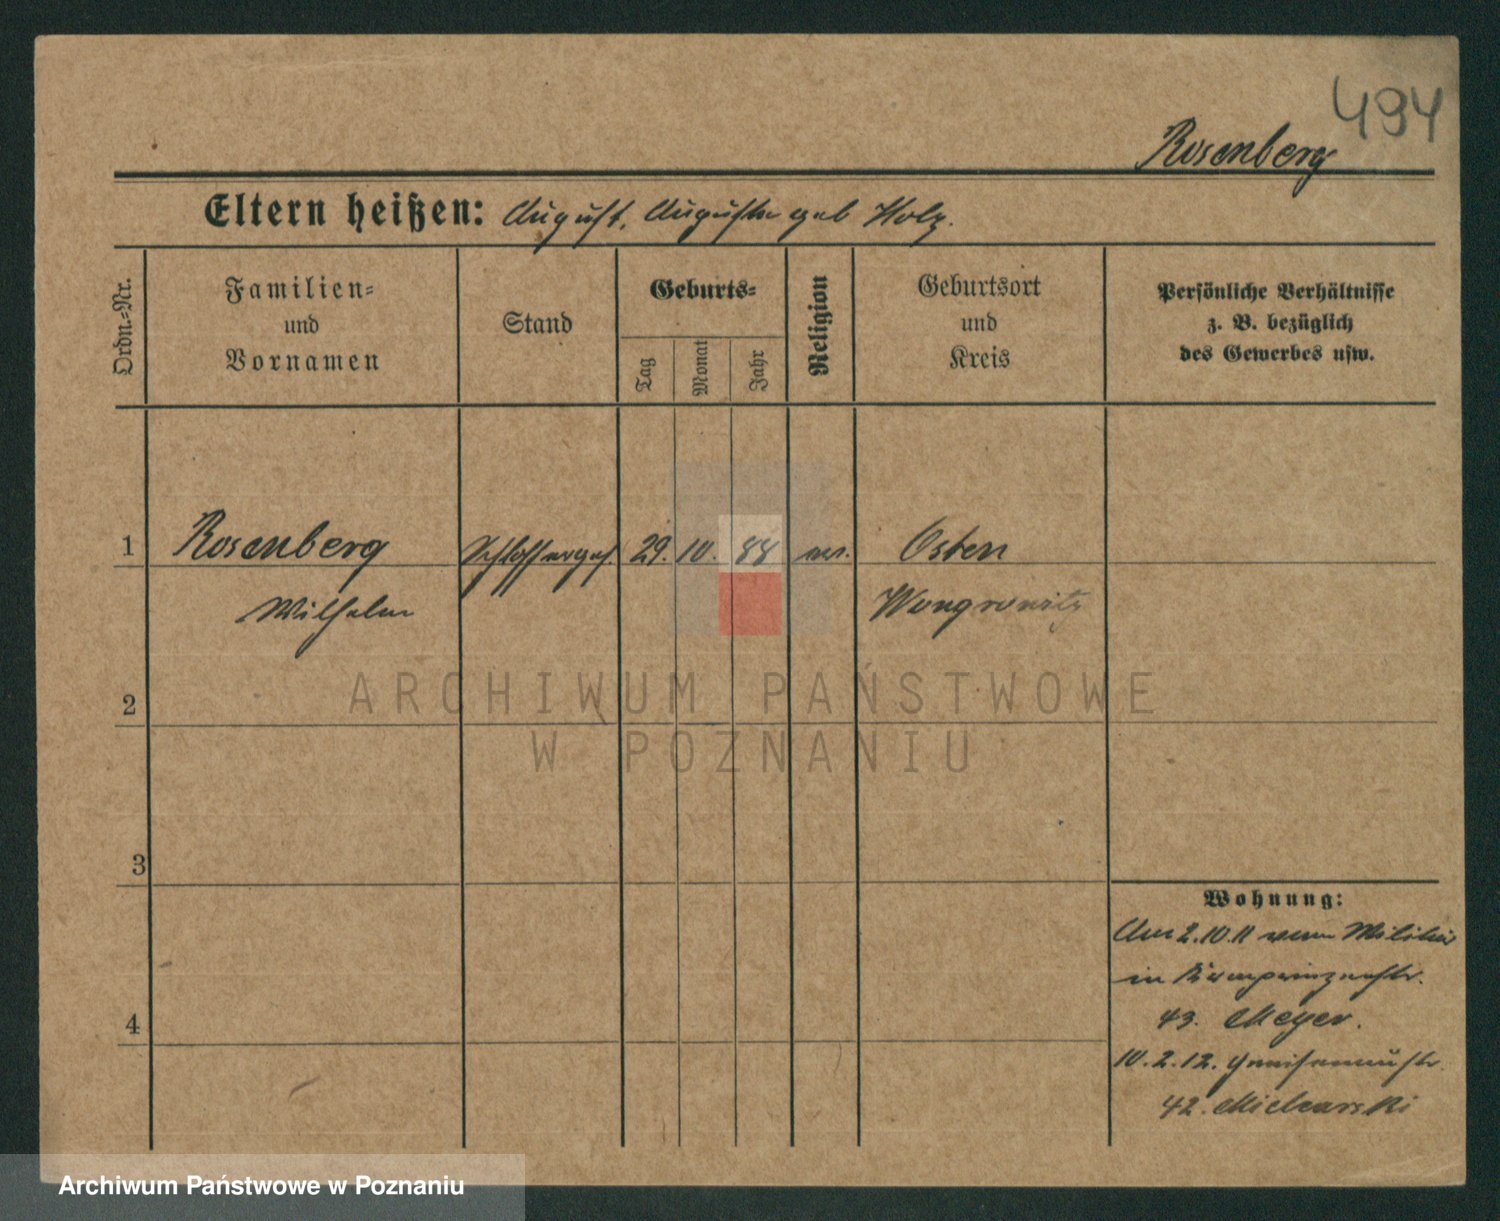 494
Rosenberg
Eltern heißen: August, Auguste geb Holz.
Ordn.=Nr.
Familien=
und
Vornamen
Stand
Geburts=
Tag
Monat
Jahr
Religion
Geburtsort
und
Kreis
Persönliche Verhältnisse
z. B. bezüglich
des Gewerbes usw.
1
Rosenberg
Schlosserges.
29.
10.
88
ev.
Osten
Wilhelm
Wongrowitz
2
ARCHIWUM PAŃSTWOWE
W POZNANIU
3
Wohnung:
Am 2.10.11 vom Militär
in Kronprinzenstr.
43. Meyer.
4
10.2.12. Gneisenaustr.
42. Micharski
Archiwum Państwowe w Poznaniu